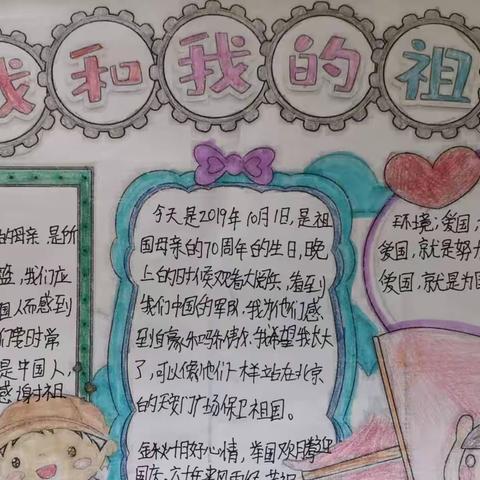 我和我的祖
的母亲 是所
我们应
国人而感到
们要时常
是中国人,
感谢祖
今天是2019年10月1日,是祖
国母亲的70周年的生日,晚
上的时候观看大阅兵,看到
我们中国的军队,我为他们感
到自豪
我希望我长大
了,可以像他们一样立站在北京
的天安门广场保卫祖国。
金秋十月好心情,举国欢腾迎
国庆,六十年来风雨
环境;爱国,
爱国,就是努力
爱国,就是为国